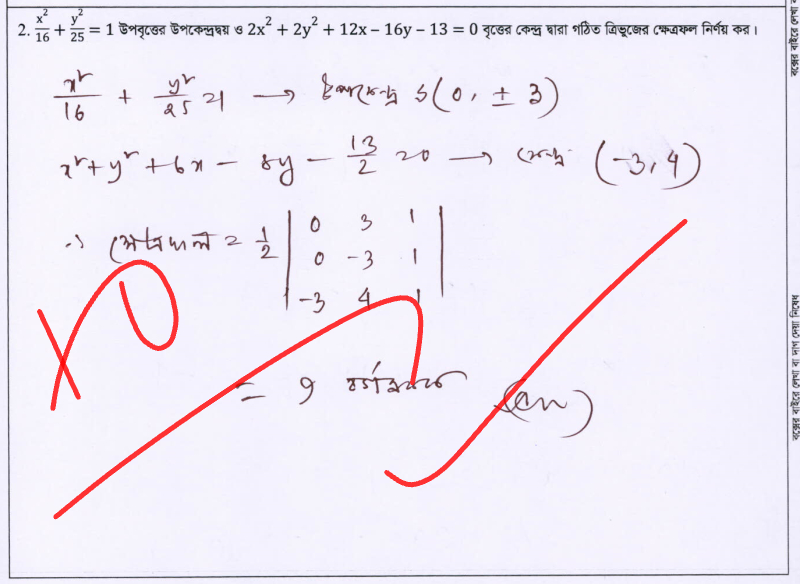 2. x²/16 + y²/25 = 1 উপবৃত্তের উপকেন্দ্রদ্বয় ও 2x² + 2y² + 12x − 16y − 13 = 0 বৃত্তের কেন্দ্র দ্বারা গঠিত ত্রিভুজের ক্ষেত্রফল নির্ণয় কর।
x²/16 + y²/25 = 1 → উপকেন্দ্র S(0, ± 3)
x² + y² + 6x − 8y − 13/2 = 0 → কেন্দ্র (−3, 4)
∴ ক্ষেত্রফল = 1/2 | 0 3 1
0 −3 1
−3 4 1 |
= 9 বর্গএকক (Ans)
বক্সের বাইরে লেখা বা
বক্সের বাইরে লেখা বা দাগ দেয়া নিষেধ